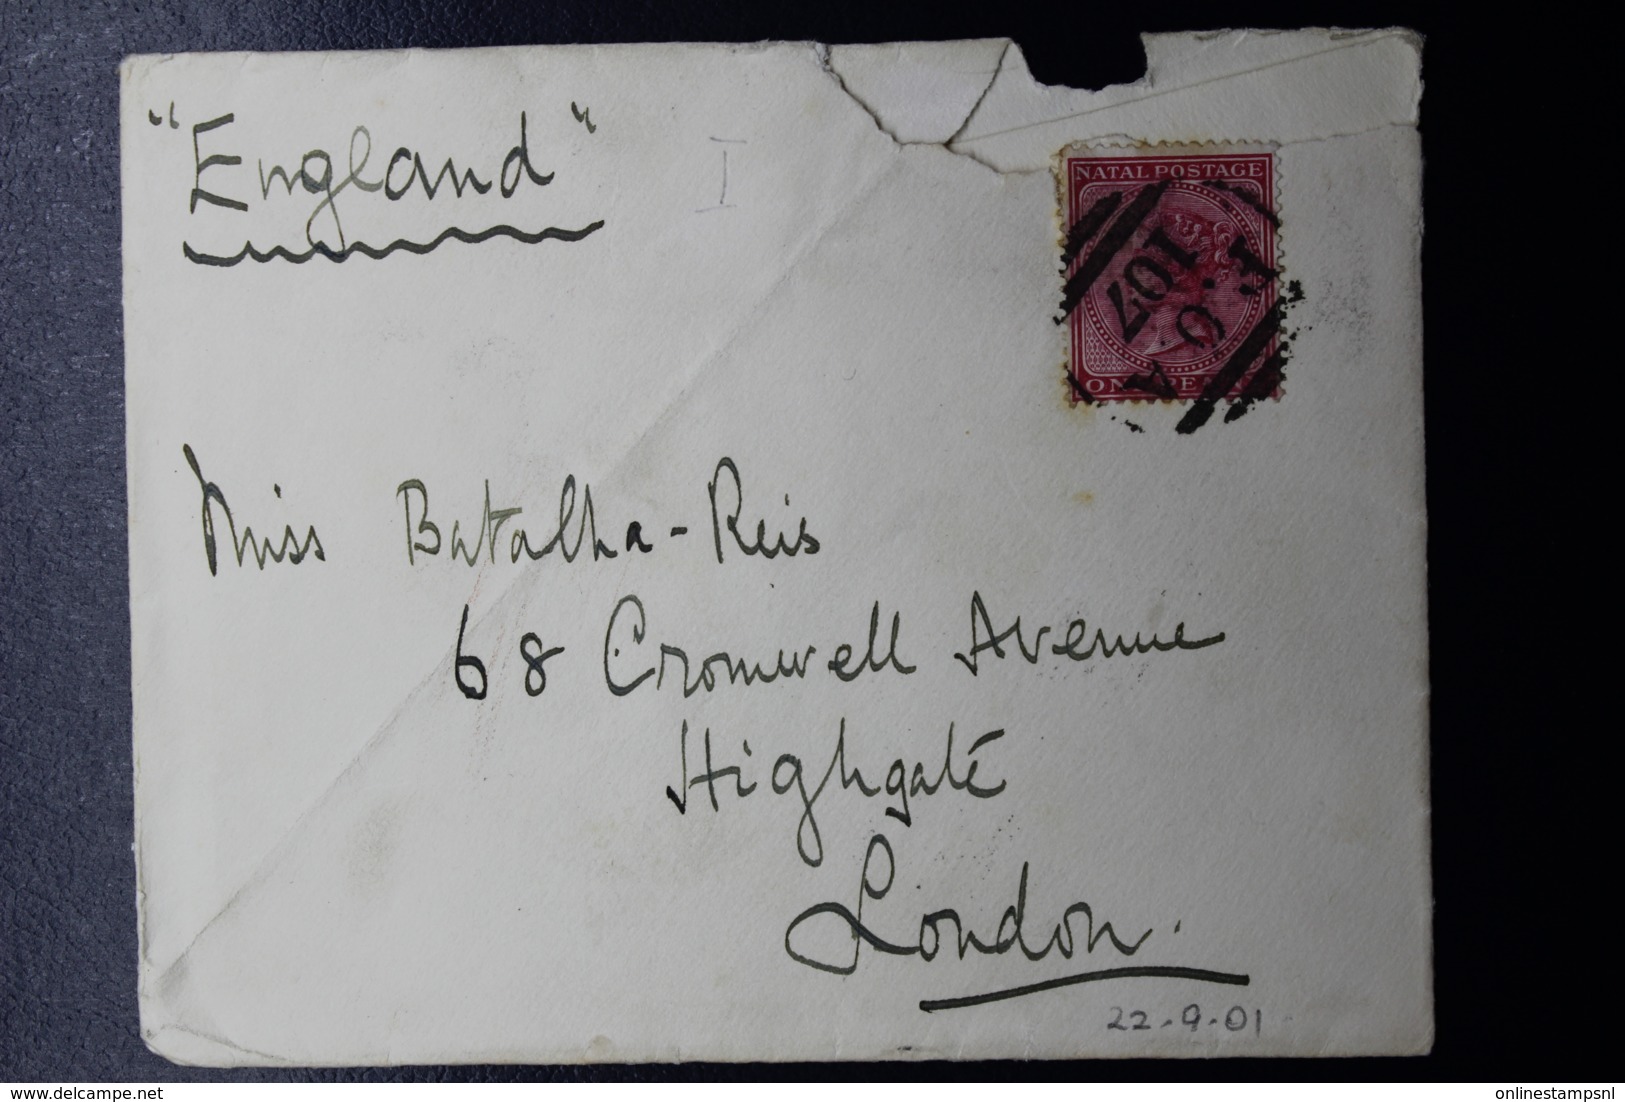 "England"
I
NATAL POSTAGE
107
F.O.A
ONE PENNY
Miss Batalha-Reis
68 Cromwell Avenue
Highgate
London.
22.9.01
onlinestampsnl